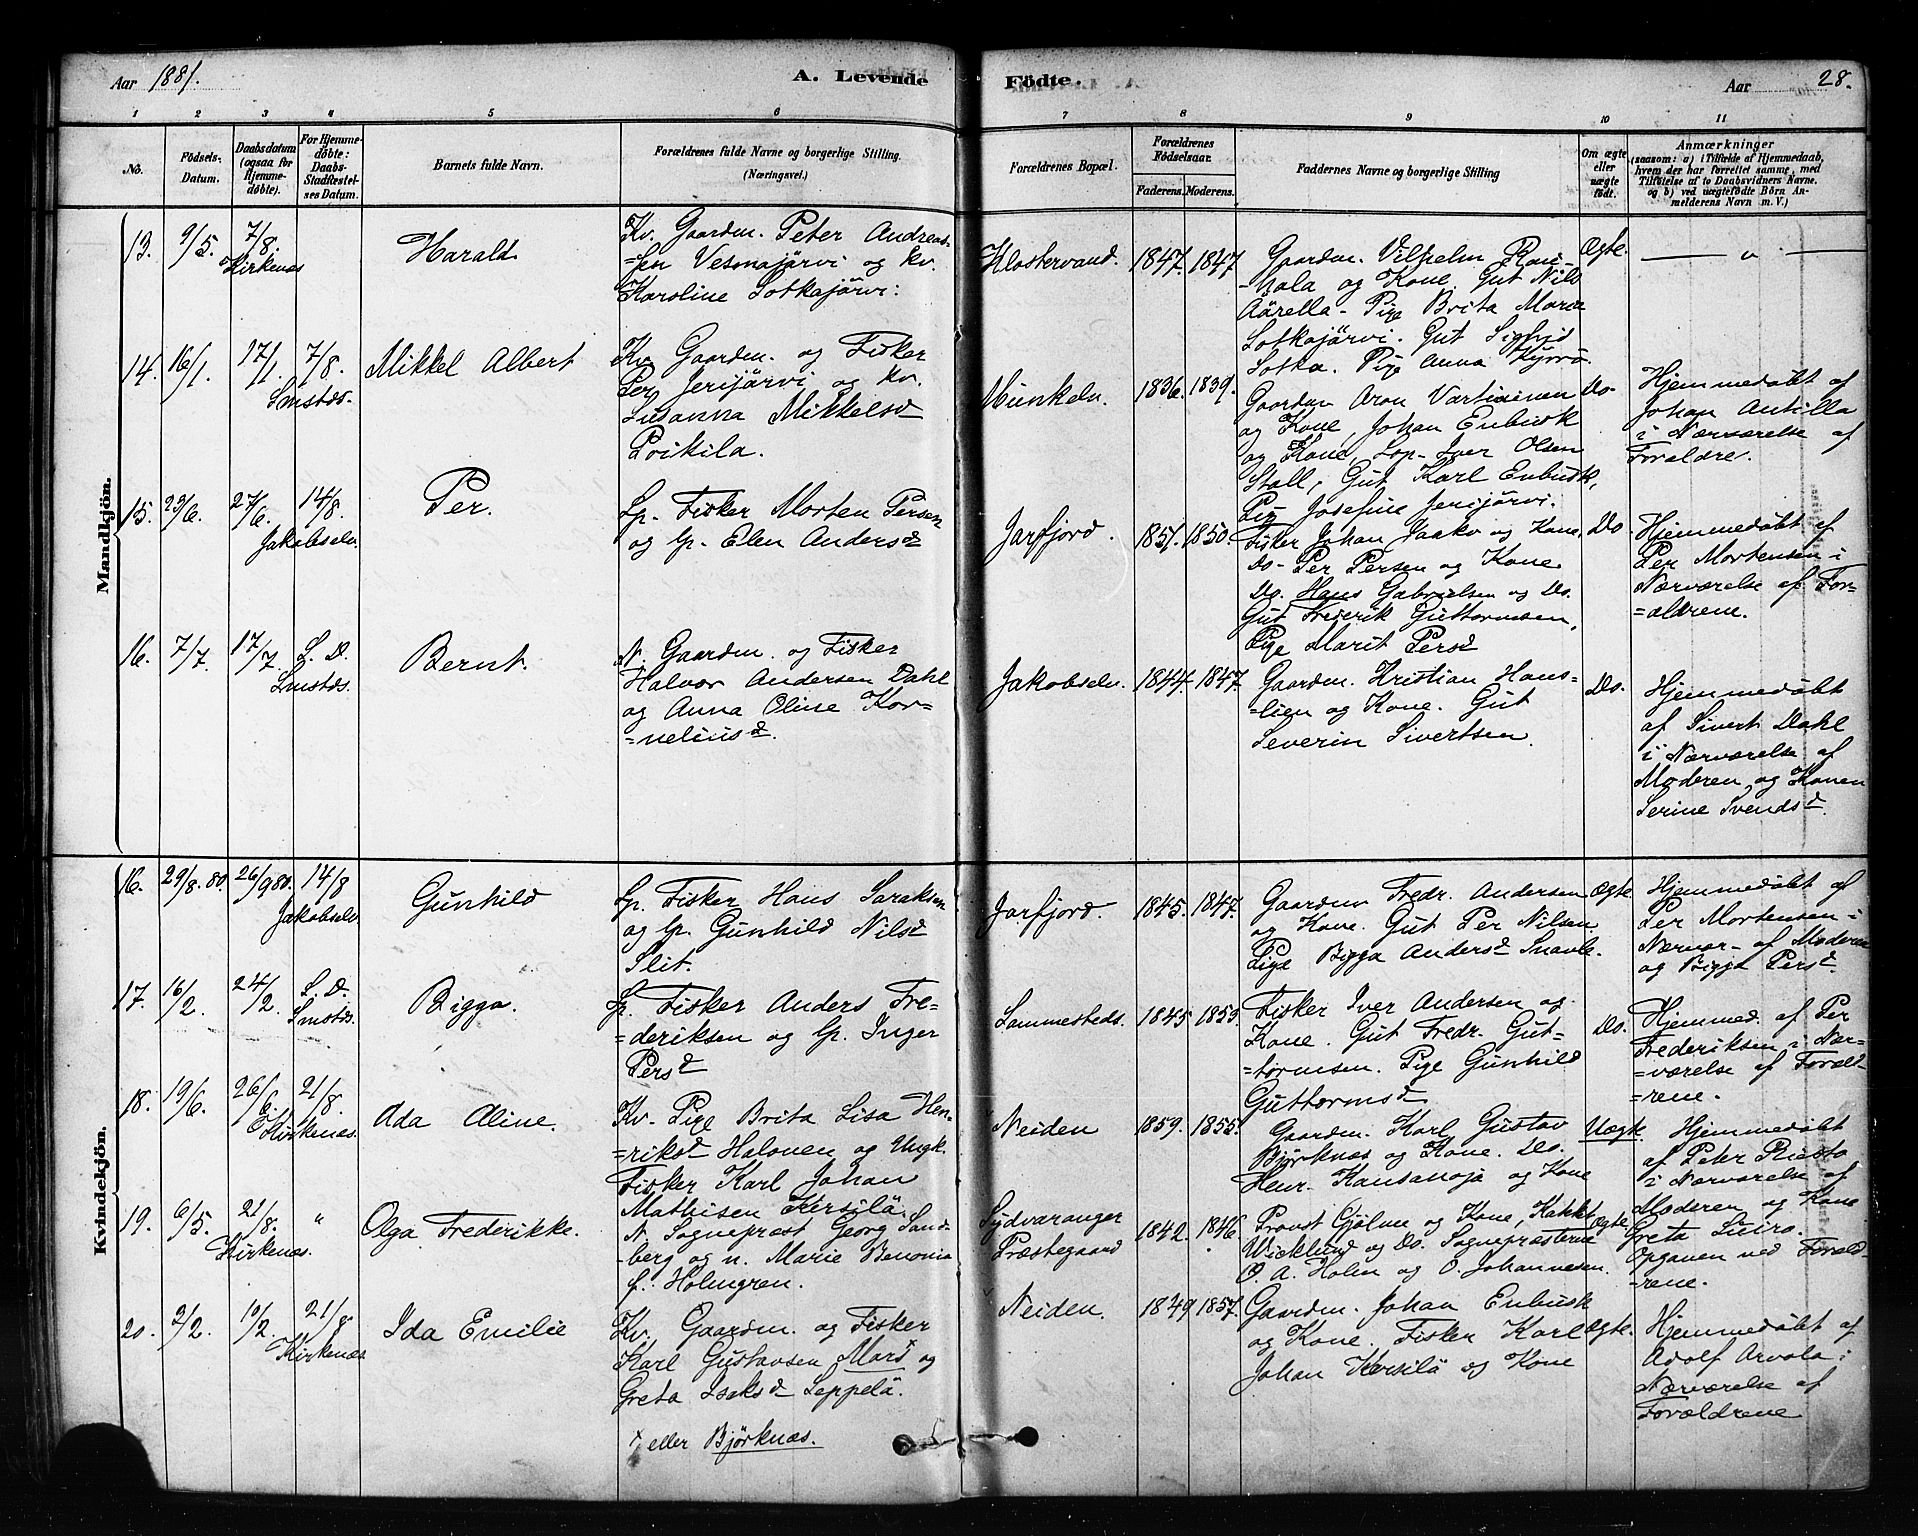 Aar 1881. A. Levende Födte. Aar 28.
1 2 3 4 5 6 7 8 9 10 11
No.
Födsels-
Datum.
Daabsdatum
(ogsaa for
Hjemme-
døbte).
For Hjemme-
døbte:
Daabs-
Stadfæstel-
ses Datum.
Barnets fulde Navn.
Forældrenes fulde Navne og borgerlige Stilling.
(Næringsvei.)
Forældrenes Bopæl.
Forældrenes
Födselsaar.
Faderens. Moderens.
Faddernes Navne og borgerlige Stilling
Om ægte
eller
uægte
födt.
Anmærkninger
(saasom: a) i Tilfælde af Hjemmedaab,
hvem der har forrettet samme, med
Tilföielse af to Daabsvidners Navne,
og b) ved uægtefödte Börn An-
melderens Navn m. V.)
Mandkjön.
13. 9/5. 7/8.
Kirkenæs
Harald
Kv. Gaardm. Peter Andreas
=sen Vesmajärvi og kv.
Karoline Sotkajärvi.
Klostervand. 1847. 1847
Gaardm. Vilhelm Rau-
-hala og Kone. Gut Nils
Äärella - Pige Brita Maria
Sotkajärvi. Gut Sighrid
Sotka. Pige Anna Kyrö.
Ægte. — " —
14. 16/1. 17/1. 7/8.
Smstds.
Mikkel Albert
Kv. Gaardm. og Fisker
Per Jerijärvi og kv.
Susanna Mikkelsd
Poikila.
Munkeln. 1836. 1839.
Gaardm Aron Vartiainen
og Kone, Johan Enbusk
og Kone, Lap- Iver Olsen
Stall, Gut Karl Enbusk,
Pig Josefine Jerijärvi.
Do.
Hjemmedøbt af
Johan Antilla
i Nærværelse af
Forældre.
15. 23/6. 27/6. 14/8.
Jakobselv
Per.
Lp. Fisker Morten Persen
og lp. Elen Andersd
Jarfjord. 1851. 1850.
Fisker Johan Jaako og Kone.
Do- Per Persen og Kone
Do. Hans Gabrielsen og Do.
Gut Frederik Guttormsen,
Pige Marit Persd
Do.
Hjemmedøbt af
Per Mortensen i
Nærværelse af For-
=ældrene.
16. 7/7. 17/7. S. D.
Smstds.
Bernt.
N. Gaardm. og Fisker
Halvor Andersen Dahl
og Anna Oline Kor-
=neliusd.
Jakobseln. 1844. 1847.
Gaardm. Kristian Hans-
=lien og Kone. Gut
Severin Sivertsen.
Do.
Hjemmedøbt
af Sivert Dahl
i Nærværelse af
Moderen og Konen
Serine Svendsd
Kvindekjön.
16. 29/8. 80. 26/9 80. 14/8
Jakobselv
Gunhild
Lp. Fisker Hans Saraksen
og lp. Gunhild Nilsd
Slit.
Jarfjord. 1845. 1847.
Gaardm Fredr. Andersen
og Kone. Gut Per Nilsen
Pige Bigga Andersd Snavle.
Ægte.
Hjemmedøbt af
Per Mortensen i
Nærvær- af Moderen
og Bigga Persd.
17. 16/2. 24/2. S. D.
Smstds.
Bigga.
Lp. Fisker Anders Fre-
=deriksen og lp. Inger
Persd
Sammesteds. 1845 1853.
Fisker Iver Andersen og
Kone. Gut Fredr. Gut-
=tormsen. Pige Gunhild
Guttormsd
Do.
Hjemmed. af Per
Frederiksen i Nær-
=værelse af Foræld-
=rene.
18. 19/6. 26/6. 21/8.
Kirkenæs.
Ada Aline.
Kv. Pige Brita Lisa Hen-
=riksd Halonen og Ungk.
Fisker Karl Johan
Mathisen Kersilä.
Neiden 1859. 1855.
Gaardm. Karl Gustav
Björknæs og Kone. Do.
Henr. Kansanoja og Kone
Uægte
Hjemmedøbt
af Peter Riesto
i Nærværelse af
Moderen og Kone
Greta Siiro.
19. 6/5. 21/8. "
Kirkenæs.
Olga Frederikke.
N. Sogneprest Georg Sand
-berg og n. Marie Benonia
f. Holmgren.
Sydvaranger
Præstegaard 1842. 1846.
Provst Gjölme og Kone,
Wicklund og Do. Sognepræsterne
O. A. Holm og O. Johannesen.
Ægte.
Opgaven ved Foræld-
-rene.
20. 2/2. 10/2. 21/8.
Kirkenæs
Ida Emilie
Kv. Gaardm. og Fisker
Karl Gustavsen Mard x og
Greta Isaksd Seppelä.
x eller Björknæs.
Neiden. 1849 1857.
Gaardm. Johan Enbusk
og Kone. Fisker Karl
Johan Kersilä og Kone
Ægte.
Hjemmedøbt af
Adolf Arvola i
Nærværelse af
Forældrene